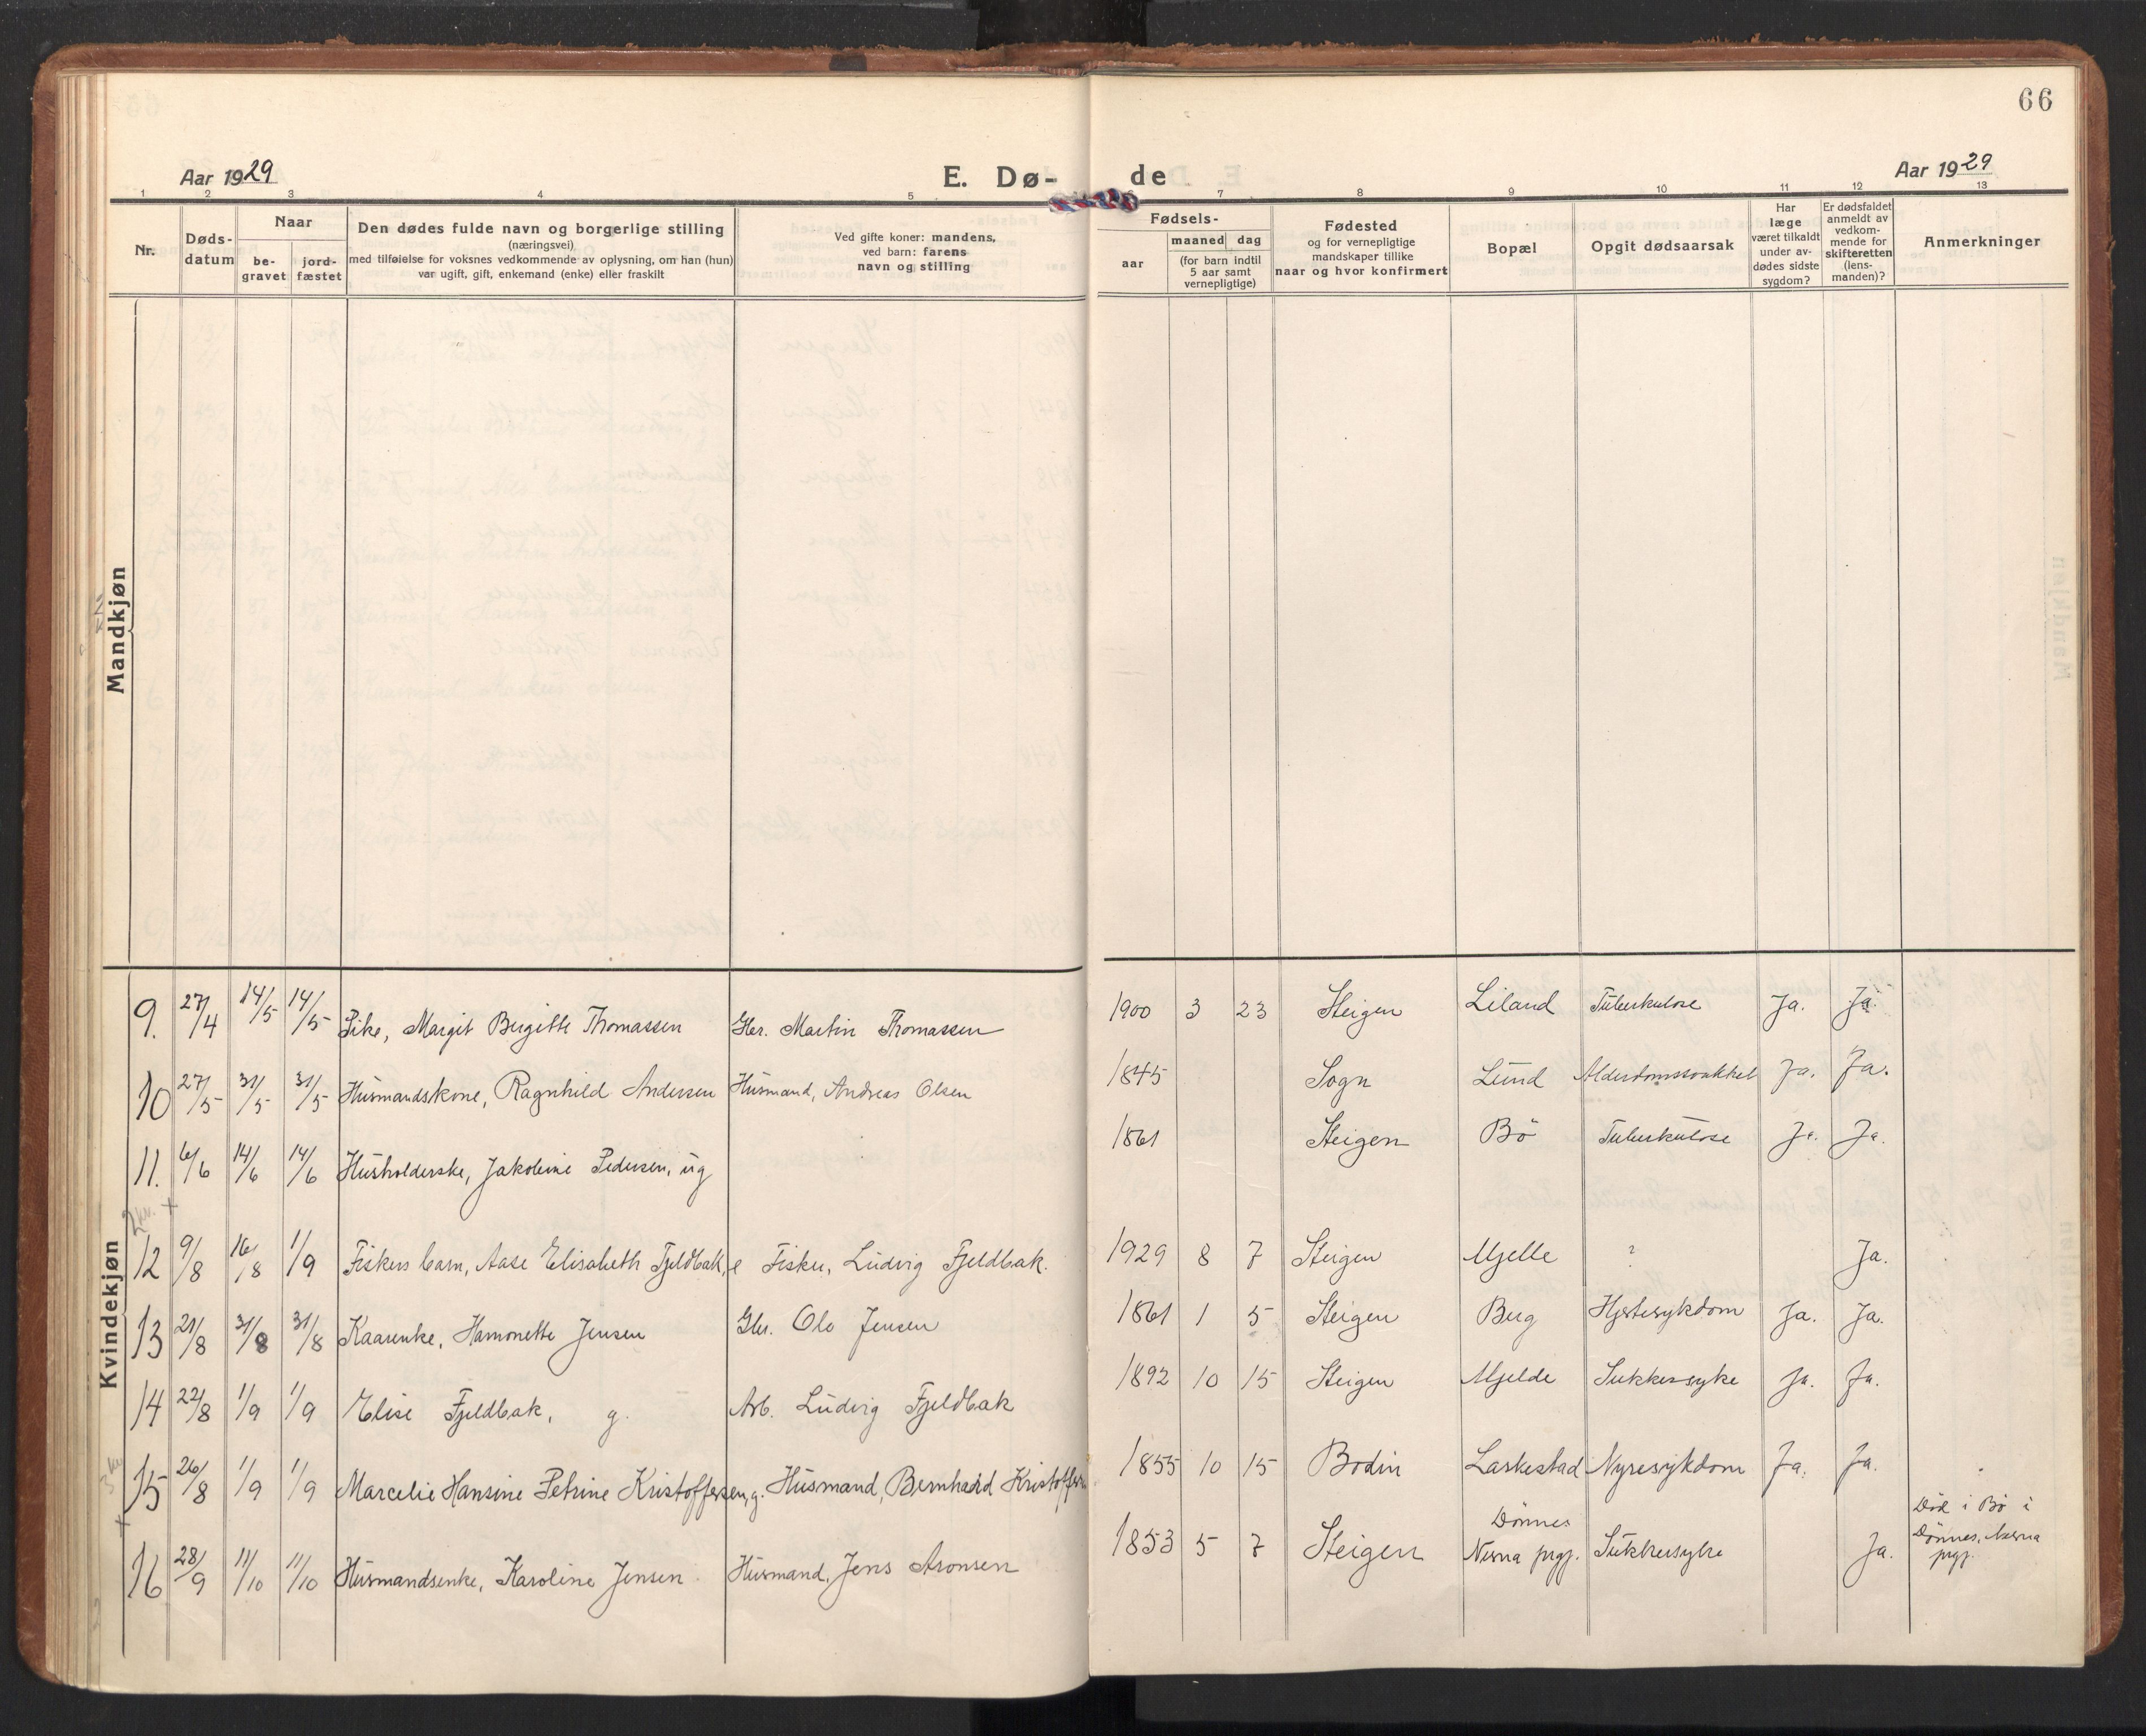 66
Aar 1929
E. Dø-
de
Aar 1929
1 2 3 4 5 6 7 8 9 10 11 12 13
Nr.
Døds-
datum
Naar
be-
gravet
jord-
fæstet
Den dødes fulde navn og borgerlige stilling
(næringsvei),
med tilføielse for voksnes vedkommende av oplysning, om han (hun)
var ugift, gift, enkemand (enke) eller fraskilt
Ved gifte koner: mandens,
ved barn: farens
navn og stilling
Fødsels-
aar
maaned dag
(for barn indtil
5 aar samt
vernepligtige)
Fødested
og for vernepligtige
mandskaper tillike
naar og hvor konfirmert
Bopæl
Opgit dødsaarsak
Har
læge
været tilkaldt
under av-
dødes sidste
sygdom?
Er dødsfaldet
anmeldt av
vedkom-
mende for
skifteretten
(lens-
manden)?
Anmerkninger
Mandkjøn
Kvindekjøn
9. 27/4 14/5 14/5 Pike, Margit Birgitte Thomassen Gbr. Martin Thomassen 1900 3 23 Steigen Liland Tuberkulose Ja. Ja.
10 27/5 31/5 31/5 Husmandskone, Ragnhild Andersen Husmand, Andreas Olsen 1845 Sogn Lund Alderdomssvakhet Ja. Ja.
11. 6/6 14/6 14/6 Husholderske, Jakobine Pedersen, ug 1861 Steigen Bö Tuberkulose Ja. Ja.
12 9/8 16/8 1/9 Fiskers barn, Aase Elisabeth Fjeldbak, e Fisker, Ludvig Fjeldbak. 1929 8 7 Steigen Mjelle ? Ja.
13 21/8 31/8 31/8 Kaarenke, Hamonette Jensen Gbr. Ole Jensen 1861 1 5 Steigen Berg Hjertesykdom Ja. Ja.
14 22/8 1/9 1/9 Elise Fjeldbak, g. Arb. Ludvig Fjeldbak 1892 10 15 Steigen Mjelde Sukkersyke Ja. Ja.
15 26/8 1/9 1/9 Marcelie Hansine Petrine Kristoffersen, g. Husmand, Bernhard Kristoffersen 1855 10 15 Bodin Laskestad Nyresykdom Ja. Ja.
16 28/9 11/10 11/10 Husmandsenke, Karoline Jensen Husmand, Jens Aronsen 1853 5 7 Steigen Dönnes
Nesna prgj. Sukkersyke Ja. Död i Bö i
Dönnes, Nesna
prgj.